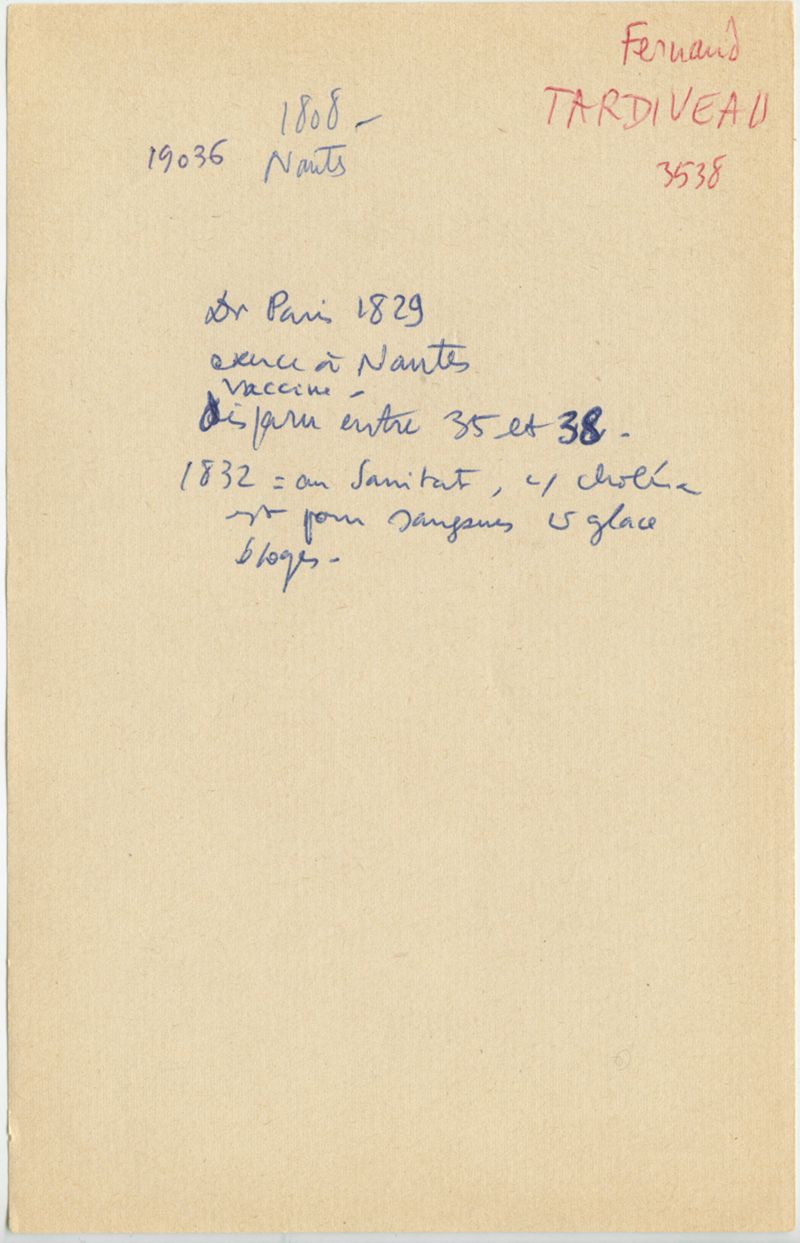 Fernand
TARDIVEAU
3538
1808 -
19036 Nantes
Dr Paris 1829
exerce à Nantes
vaccine -
disparu entre 35 et 38.
1832 = au Sanitat, c/ choléra
est pour sangsues et glace
éloges -